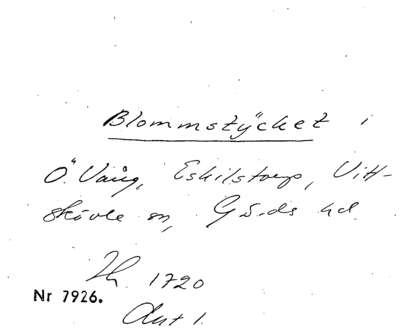 Blommstycket i
Ö. Vång, Eskilstorp, Vitt-
skövle sn, Gärds hd.
H. 1720
Nr 7926.
Akt 1.